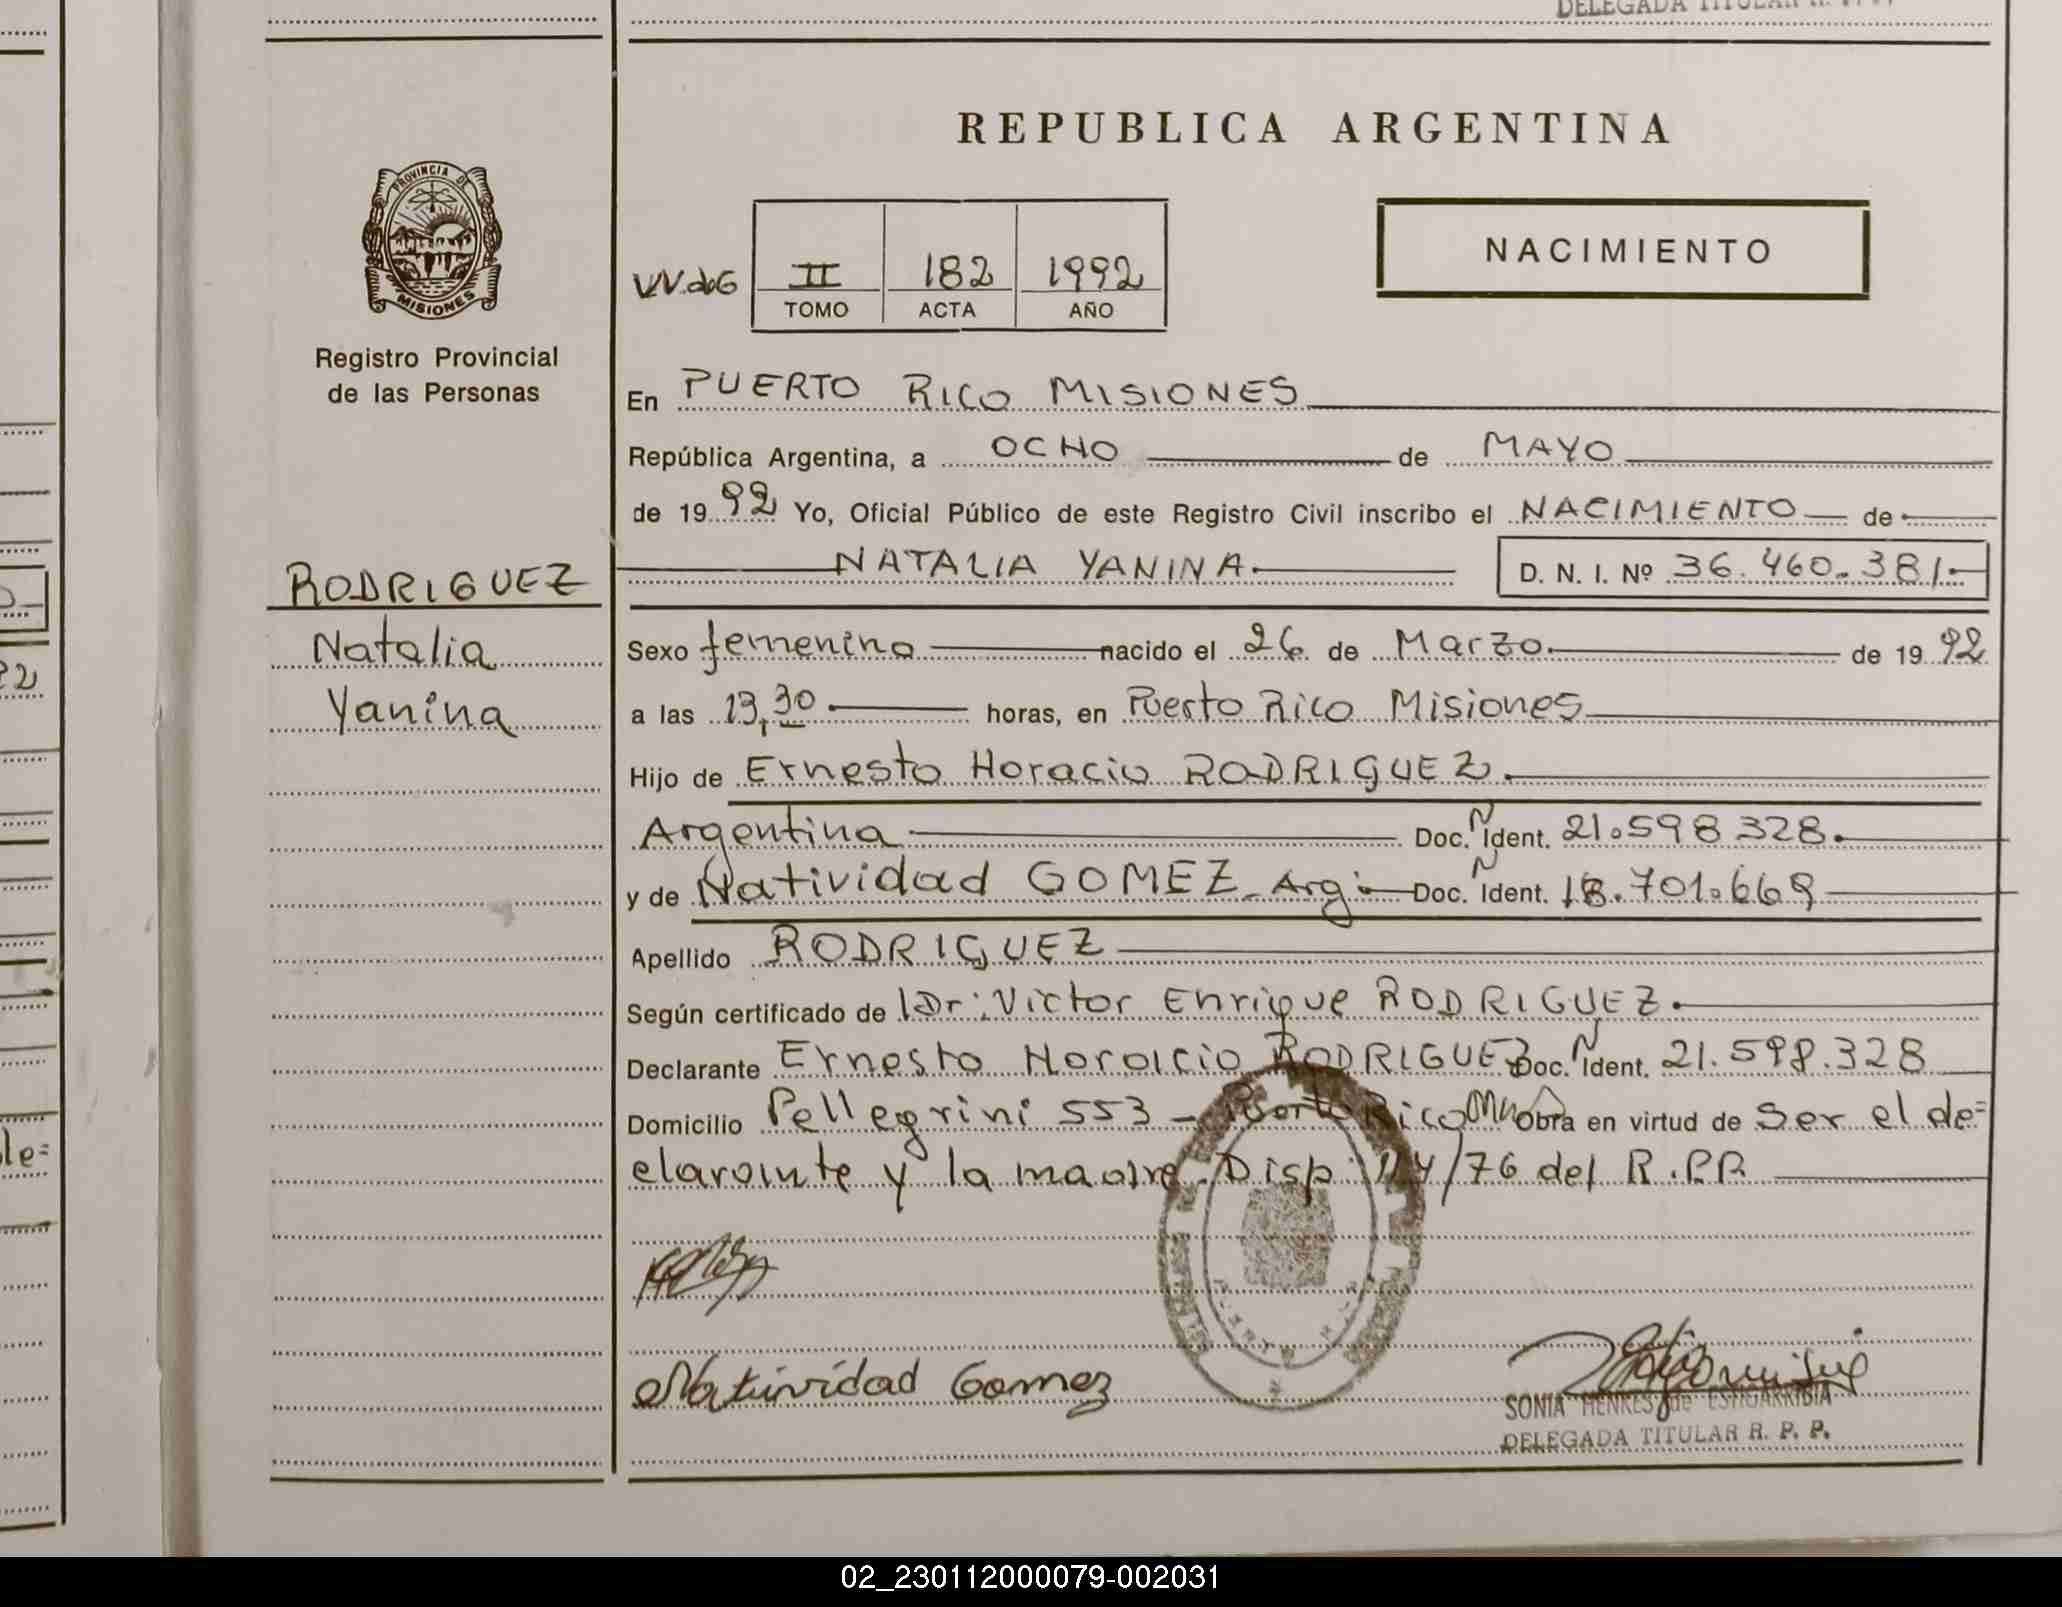 DELEGADA TITULAR R. P. P.
REPUBLICA ARGENTINA
PROVINCIA DE
MISIONES
Registro Provincial
de las Personas
II 182 1992
TOMO ACTA AÑO
NACIMIENTO
En PUERTO RICO MISIONES
República Argentina, a OCHO de MAYO
de 1992 Yo, Oficial Público de este Registro Civil inscribo el NACIMIENTO de
NATALIA YANINA D. N. I. Nº 36.460.381
RODRIGUEZ
Natalia
Yanina
Sexo femenino nacido el 26 de Marzo de 1992
a las 13,30 horas, en Puerto Rico Misiones
Hijo de Ernesto Horacio RODRIGUEZ.
Argentina Doc. N Ident. 21.598 328.
y de Natividad GOMEZ - Arg. Doc. N Ident. 18.701.669
Apellido RODRIGUEZ
Según certificado de Dr: Victor Enrique RODRIGUEZ.
Declarante Ernesto Horacio RODRIGUEZ Doc. N Ident. 21.598.328
Domicilio Pellegrini 553 - Puerto Rico Mnes Obra en virtud de ser el de=
clarante y la madre. Disp. 114/76 del R.P.P.
Natividad Gomez
SONIA HENKES de ESHGARRIBIA
DELEGADA TITULAR R. P. P.
02_230112000079-002031